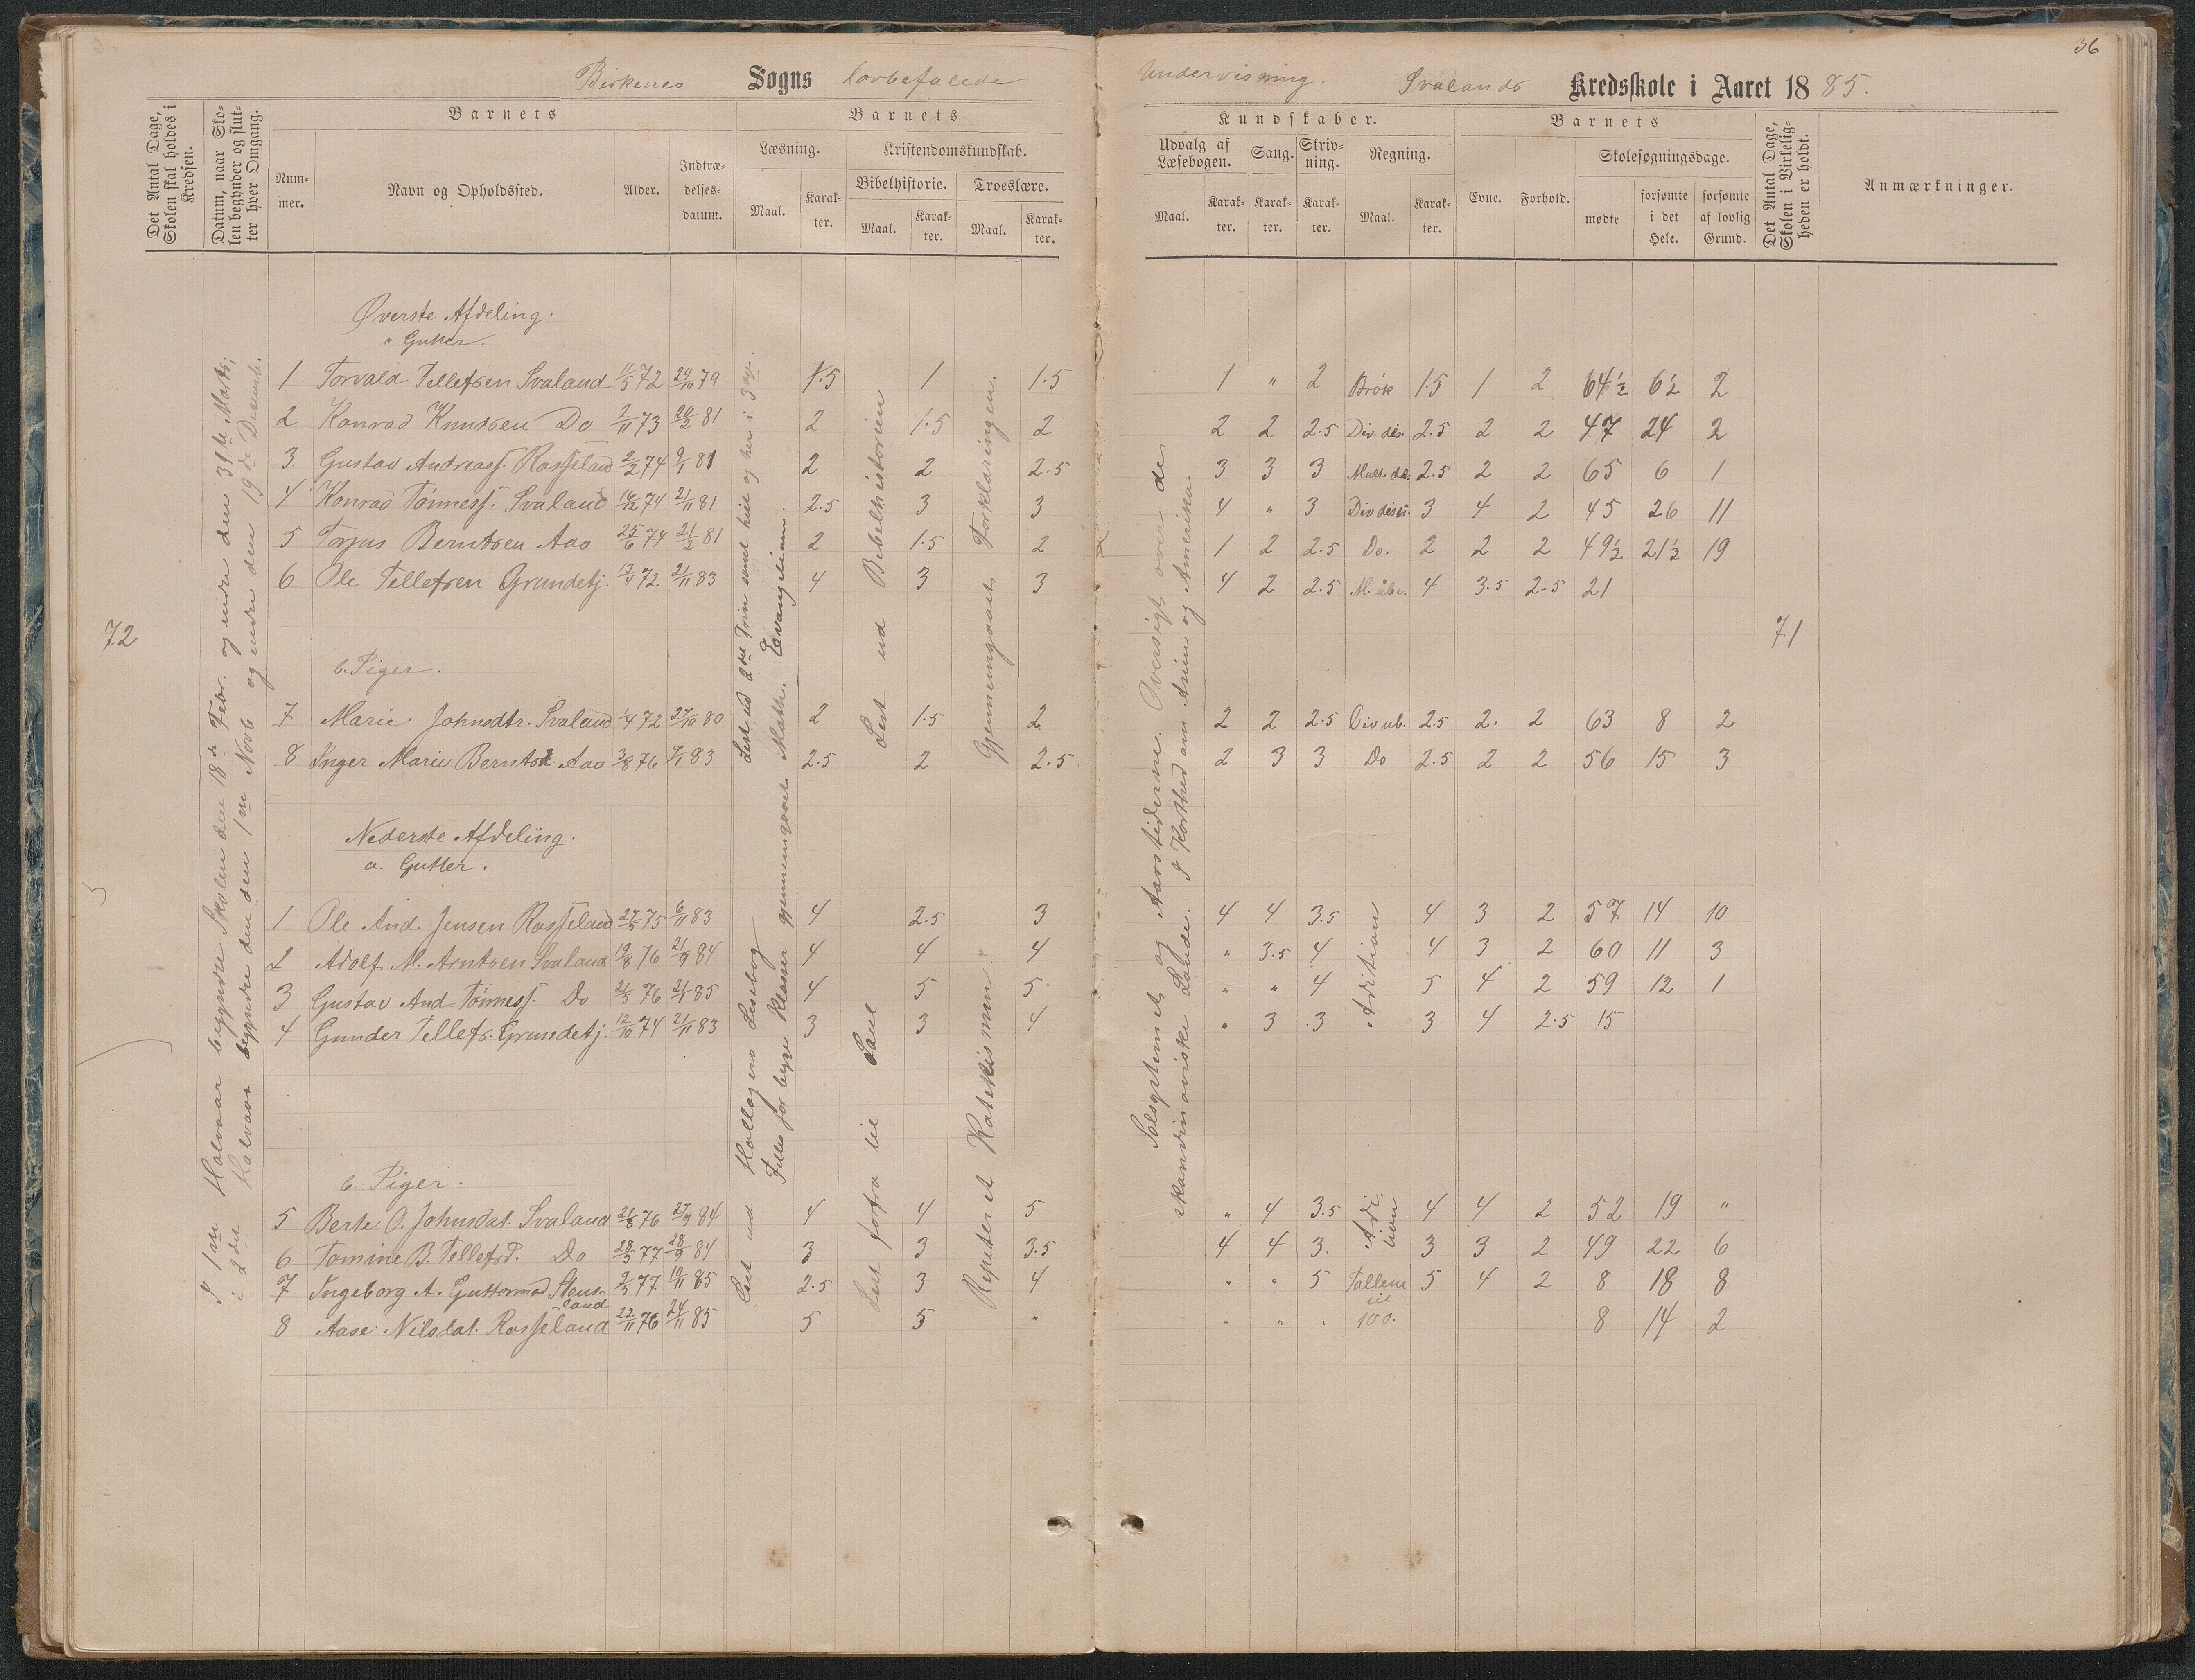 36
Birkenes Sogns lovbefalede Undervisning. Svalands Kredsskole i Aaret 1885.
Det Antal Dage, Skolen skal holdes i Kredsen.
Datum, naar Skolen begynder og slutter hver Omgang.
Barnets
Nummer.
Navn og Opholdssted.
Alder.
Indtrædelsesdatum.
Barnets
Læsning.
Maal.
Karakter.
Kristendomskundskab.
Bibelhistorie.
Maal.
Karakter.
Troeslære.
Maal.
Karakter.
Kundskaber.
Udvalg af Læsebogen.
Maal.
Karakter.
Sang.
Karakter.
Skrivning.
Karakter.
Regning.
Maal.
Karakter.
Barnets
Evne.
Forhold.
Skolesøgningsdage.
mødte
forsømte i det Hele.
forsømte af lovlig Grund.
Det Antal Dage, Skolen i Virkeligheden er holdt.
Anmærkninger.
72
71
I 1ste Halvaar begyndte Skolen den 18de Febr. og endte den 31te Marts;
i 2det Halvaar begyndte den den 1ste Novb og endte den 19de Decemb.
Læst ud 2det Trin samt hele og halve i 3die.
Evangelium.
Læst ud Bibelhistorien
Gjennemgaaet Forklaringen.
Læst ud Læsebog
Fælles for begge Klasser gjennemgaaet Math.
Læst forfra til Saul
Repeteret Katekismen
Solsystemet og Aarstiderne. Oversigt over de
skandinaviske Lande. I Korthed om Asien og Amerika
Øverste Afdeling.
a Gutter.
1 Torvald Tellefsen Svaland 11/5 72 29/10 79 1.5 1 1.5 1 " 2 Brök 1.5 1 2 64½ 6½ 2
2 Konrad Knudsen Do 2/11 73 20/2 81 2 1.5 2 2 2 2.5 Div. des. 2.5 2 2 47 24 2
3. Gustav Andreass. Rosseland 2/2 74 9/1 81 2 2 2.5 3 3 3 Mult. de. 2.5 2 2 65 6 1
4 Konrad Tønness. Svaland 16/12 74 21/11 81 2.5 3 3 4 " 3 Div des. 3 4 2 45 26 11
5 Torjus Berntsen Aas 25/6 74 21/2 81 2 1.5 2 1 2 2.5 Do. 2 2 2 49½ 21½ 19
6 Ole Tellefsen Grundetj. 12/4 72 21/11 83 4 3 3 4 2 2.5 M. übe. 4 3.5 2.5 21
b. Piger.
7 Marie Johnsdtr. Svaland 1/4 72 27/10 80 2 1.5 2 2 2 2.5 Div ub. 2.5 2. 2 63 8 2
8 Inger Marie Berntsd. Aas 3/8 76 7/1 83 2.5 2 2.5 2 3 3 Do 2.5 2 2 56 15 3
Nederste Afdeling.
a. Gutter.
1 Ole And. Jensen Rosseland 27/5 75 6/11 83 4 2.5 3 4 4 3.5 Addition 4 3 2 57 14 10
2 Adolf M. Arntsen Svaland 19/8 76 21/9 84 4 4 4 " 3.5 4 4 3 2 60 11 3
3 Gustav And. Tønness. Do 21/5 76 21/1 85 4 5 5 " " 4 5 4 2 59 12 1
4 Gunder Tellefs. Grundetj. 12/10 74 21/11 83 3 3 4 " 3 3 3 4 2.5 15
b. Piger.
5 Berte O. Johnsdat. Svaland 21/8 76 27/9 84 4 4 5 " 4 3.5 Addition 4 4 2 52 19 "
6 Tomine B. Tellefsd. Do 28/5 77 28/9 84 3 3 3.5 4 4 3. 3 3 2 49 22 6
7 Ingeborg A. Guttormsd Stensland 9/5 77 10/11 85 2.5 3 4 " " 5 Tallene til 100. 5 4 2 8 18 8
8 Aase Nilsdat. Rosseland 22/11 76 24/11 85 5 5 " " " " 8 14 2